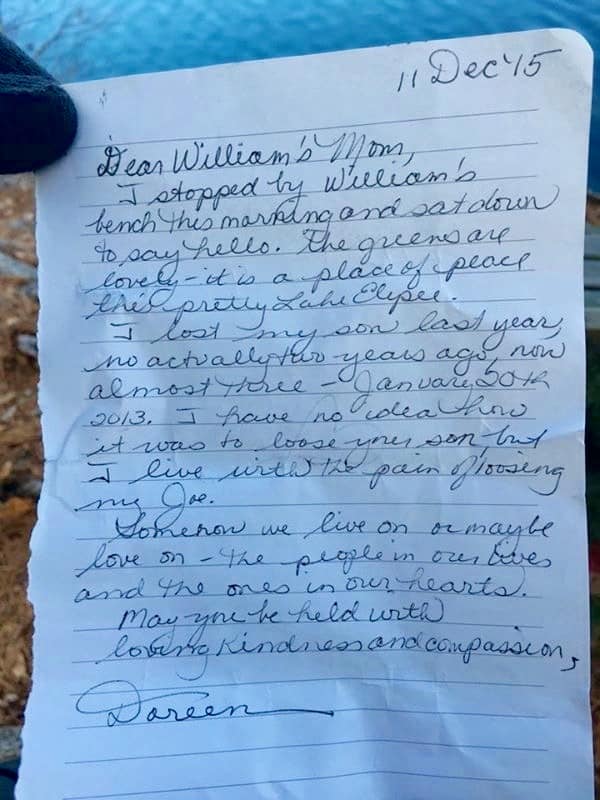 11 Dec '15
Dear William's Mom,
I stopped by William's
bench this morning and sat down
to say hello. The greens are
lovely - it is a place of peace
this pretty Lake
I lost my son last year,
no actually two years ago, now
almost three - January 20th
2013. I have no idea how
it was to loose your son, but
I live with the pain of loosing
my Joe.
Somehow we live on or maybe
love on - the people in our lives
and the ones in our hearts.
May you be held with
loving kindness and compassion,
Doreen